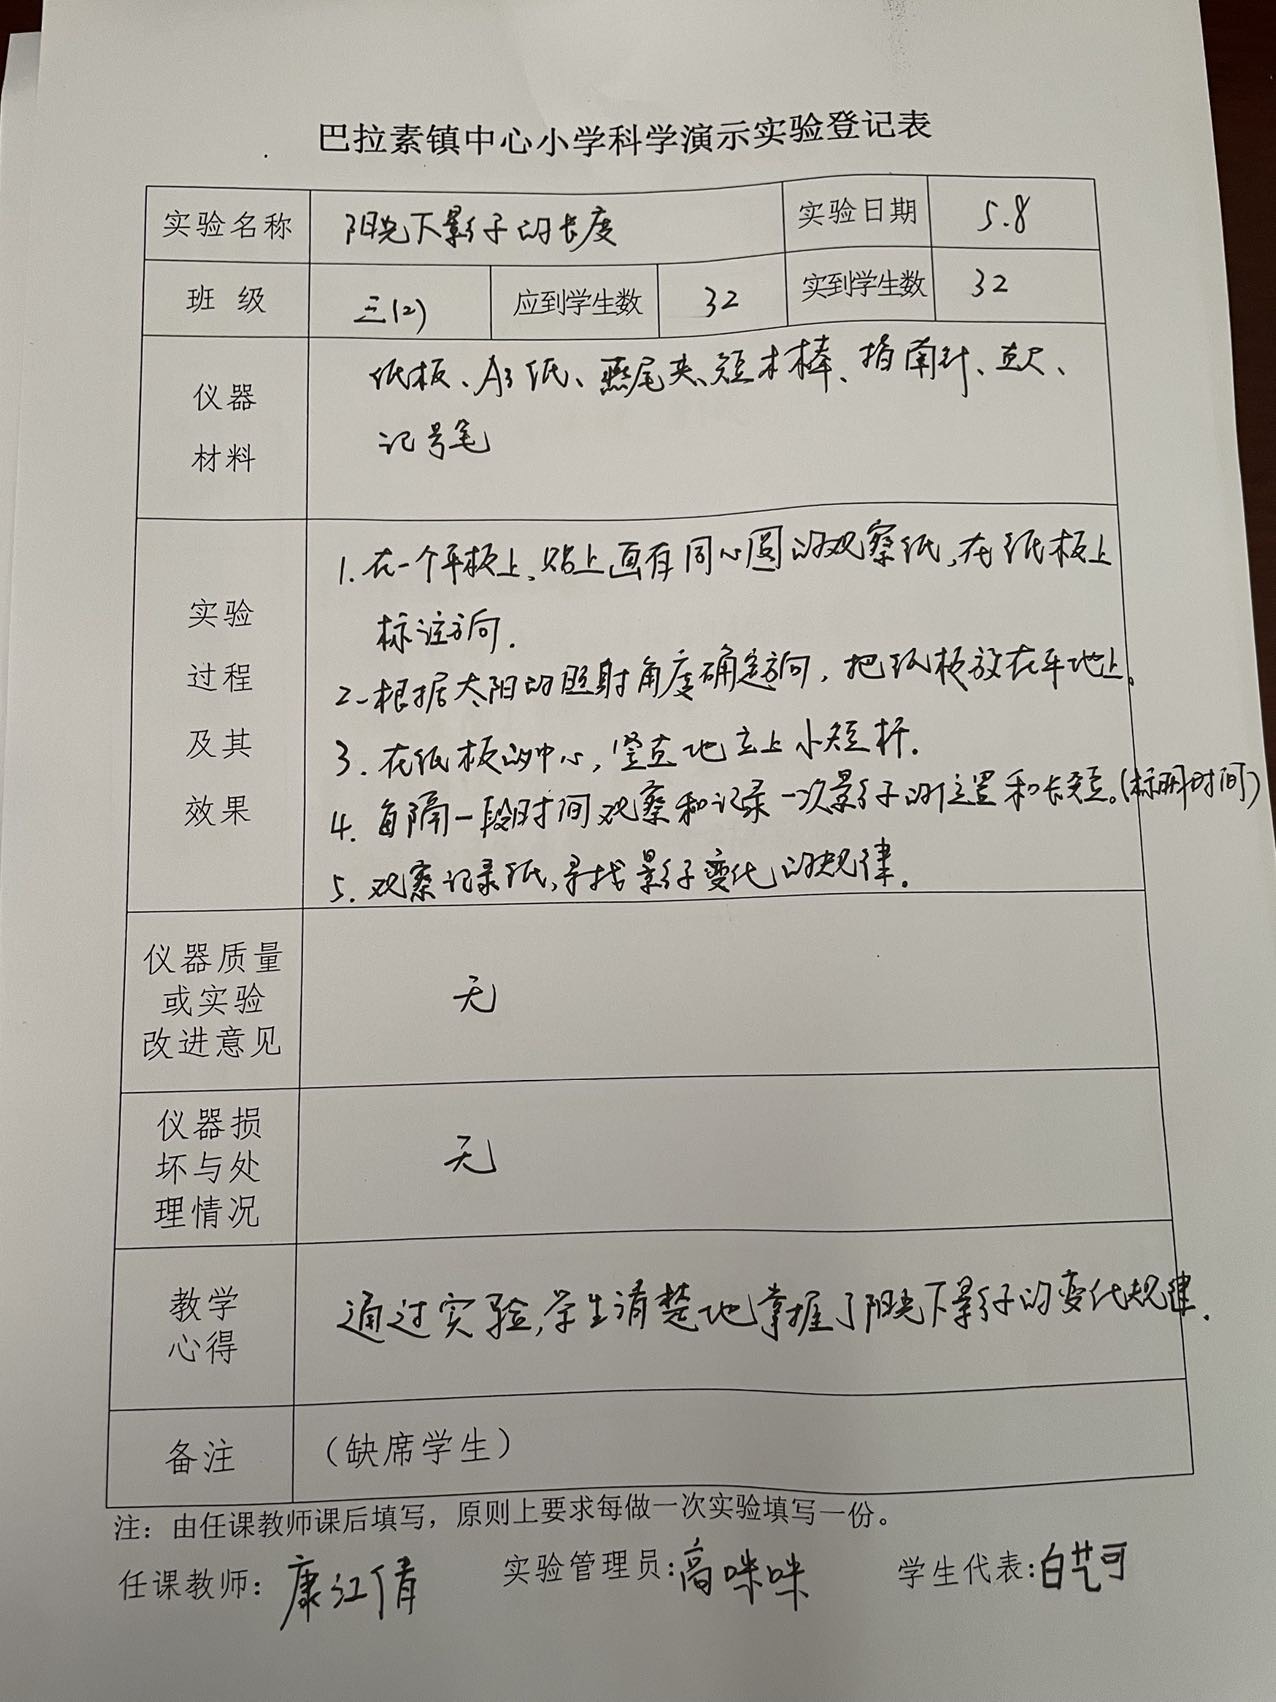 巴拉素镇中心小学科学演示实验登记表
实验名称 阳光下影子的长度 实验日期 5.8
班 级 三(2) 应到学生数 32 实到学生数 32
仪器
材料
纸板、A3纸、燕尾夹、短木棒、指南针、直尺、
记号笔
实验
过程
及其
效果
1.在一个平板上、贴上画有同心圆的观察纸,在纸板上
标注方向.
2.根据太阳的照射角度确定方向,把纸板放在平地上.
3.在纸板的中心,竖直地立上小短杆.
4.每隔一段时间观察和记录一次影子的位置和长短。(标明时间)
5.观察记录纸,寻找影子变化的规律.
仪器质量
或实验
改进意见
无
仪器损
坏与处
理情况
无
教学
心得
通过实验,学生清楚地掌握了阳光下影子的变化规律.
备注 (缺席学生)
注：由任课教师课后填写，原则上要求每做一次实验填写一份。
任课教师：康江倩 实验管理员:高咪咪 学生代表:白艺可